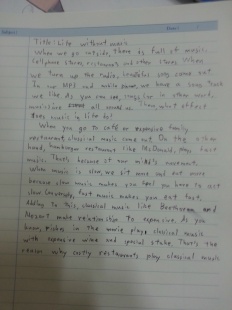 Title: Life without music
When we go outside, there is full of music.
Cellphone stores, restaurants and other stores. When
we turn up the radio, come out.
In our MP3 and we have a song that
we like. As you can see, in other word,
music all. Then, what effect
does music in life by?
When you go to cafe or expensive family
restaurant classical music come out. On the other
hand, hamburger restaurant like McDonald, they fast
music. That's because of our movement.
When music is slow, we sit more and eat more
because slow music makes you feel you have to eat
slow. Conversely, fast music makes you eat fast.
Adding to this, classical music like Beethoven and
Mozart make relationship to expensive. As you
know, riches in the movie plays classical music
with expensive wine and special stake. That's the
reason why costly restaurants play classical music